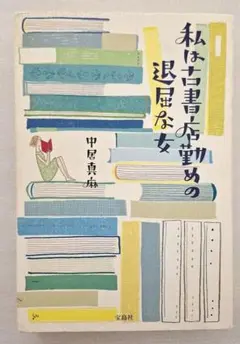 私は古書店勤めの
退屈な女
中居真麻
宝島社